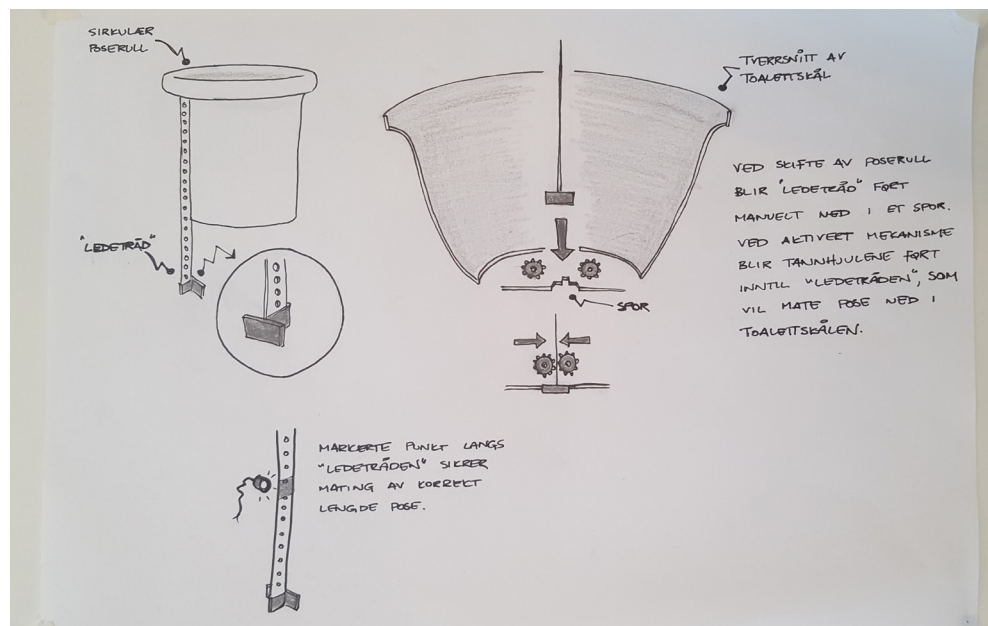 SIRKULÆR
POSERULL
"LEDETRÅD"
TVERRSNITT AV
TOALETTSKÅL
SPOR
VED SKIFTE AV POSERULL
BLIR "LEDETRÅD" FØRT
MANUELT NED I ET SPOR.
VED AKTIVERT MEKANISME
BLIR TANNHJULENE FØRT
INNTIL "LEDETRÅDEN", SOM
VIL MATE POSE NED I
TOALETTSKÅLEN.
MARKERTE PUNKT LANGS
"LEDETRÅDEN" SIKRER
MATING AV KORREKT
LENGDE POSE.